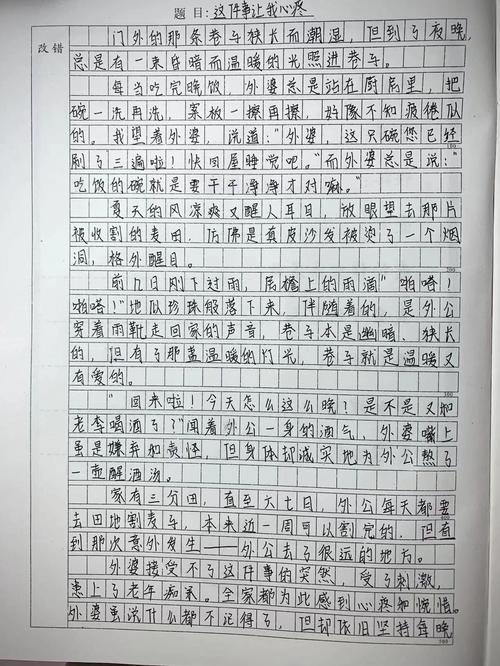 题目：这件事让我心疼
改错
门外的那条巷弄狭长而潮湿，但到了夜晚，
总是有一束昏暗而温暖的光照进巷弄。
每当吃完晚饭，外婆总是站在厨房里，把
碗一洗再洗，案板一擦再擦，好像不知疲倦似
的。我望着外婆，说道："外婆，这只碗您已经
刷了三遍啦！快回屋睡觉吧。"而外婆总是说："
吃饭的碗就是要干干净净才对嘛。"
夏天的风凉爽又醒人耳目，放眼望去那片
被收割的麦田，仿佛是真皮沙发被烫了一个烟
洞，格外醒目。
前几日刚下过雨，屋檐上的雨滴"啪嗒！
啪嗒！"地似珍珠般落下来，伴随着的，是外公
穿着雨靴走回家的声音，巷弄本是幽暗、狭长
的，但有了那盏温暖的灯光，巷弄就是温暖又
有爱的。
"回来啦！今天怎么这么晚？是不是又和
老李喝酒了？"闻着外公一身的酒气，外婆嘴上
虽是嫌弃和责怪，但身体却诚实地为外公熬了
一壶醒酒汤。
家有三分田，直至六七日，外公每天都要
去田地割麦子，本来近一周可以割完的，但直
到那次意外发生——外公去了很远的地方。
外婆接受不了这件事的突然，受了刺激，
患上了老年痴呆。全家都为此感到心疼和惋惜。
外婆虽说什么都不记得了，但却依旧坚持每晚